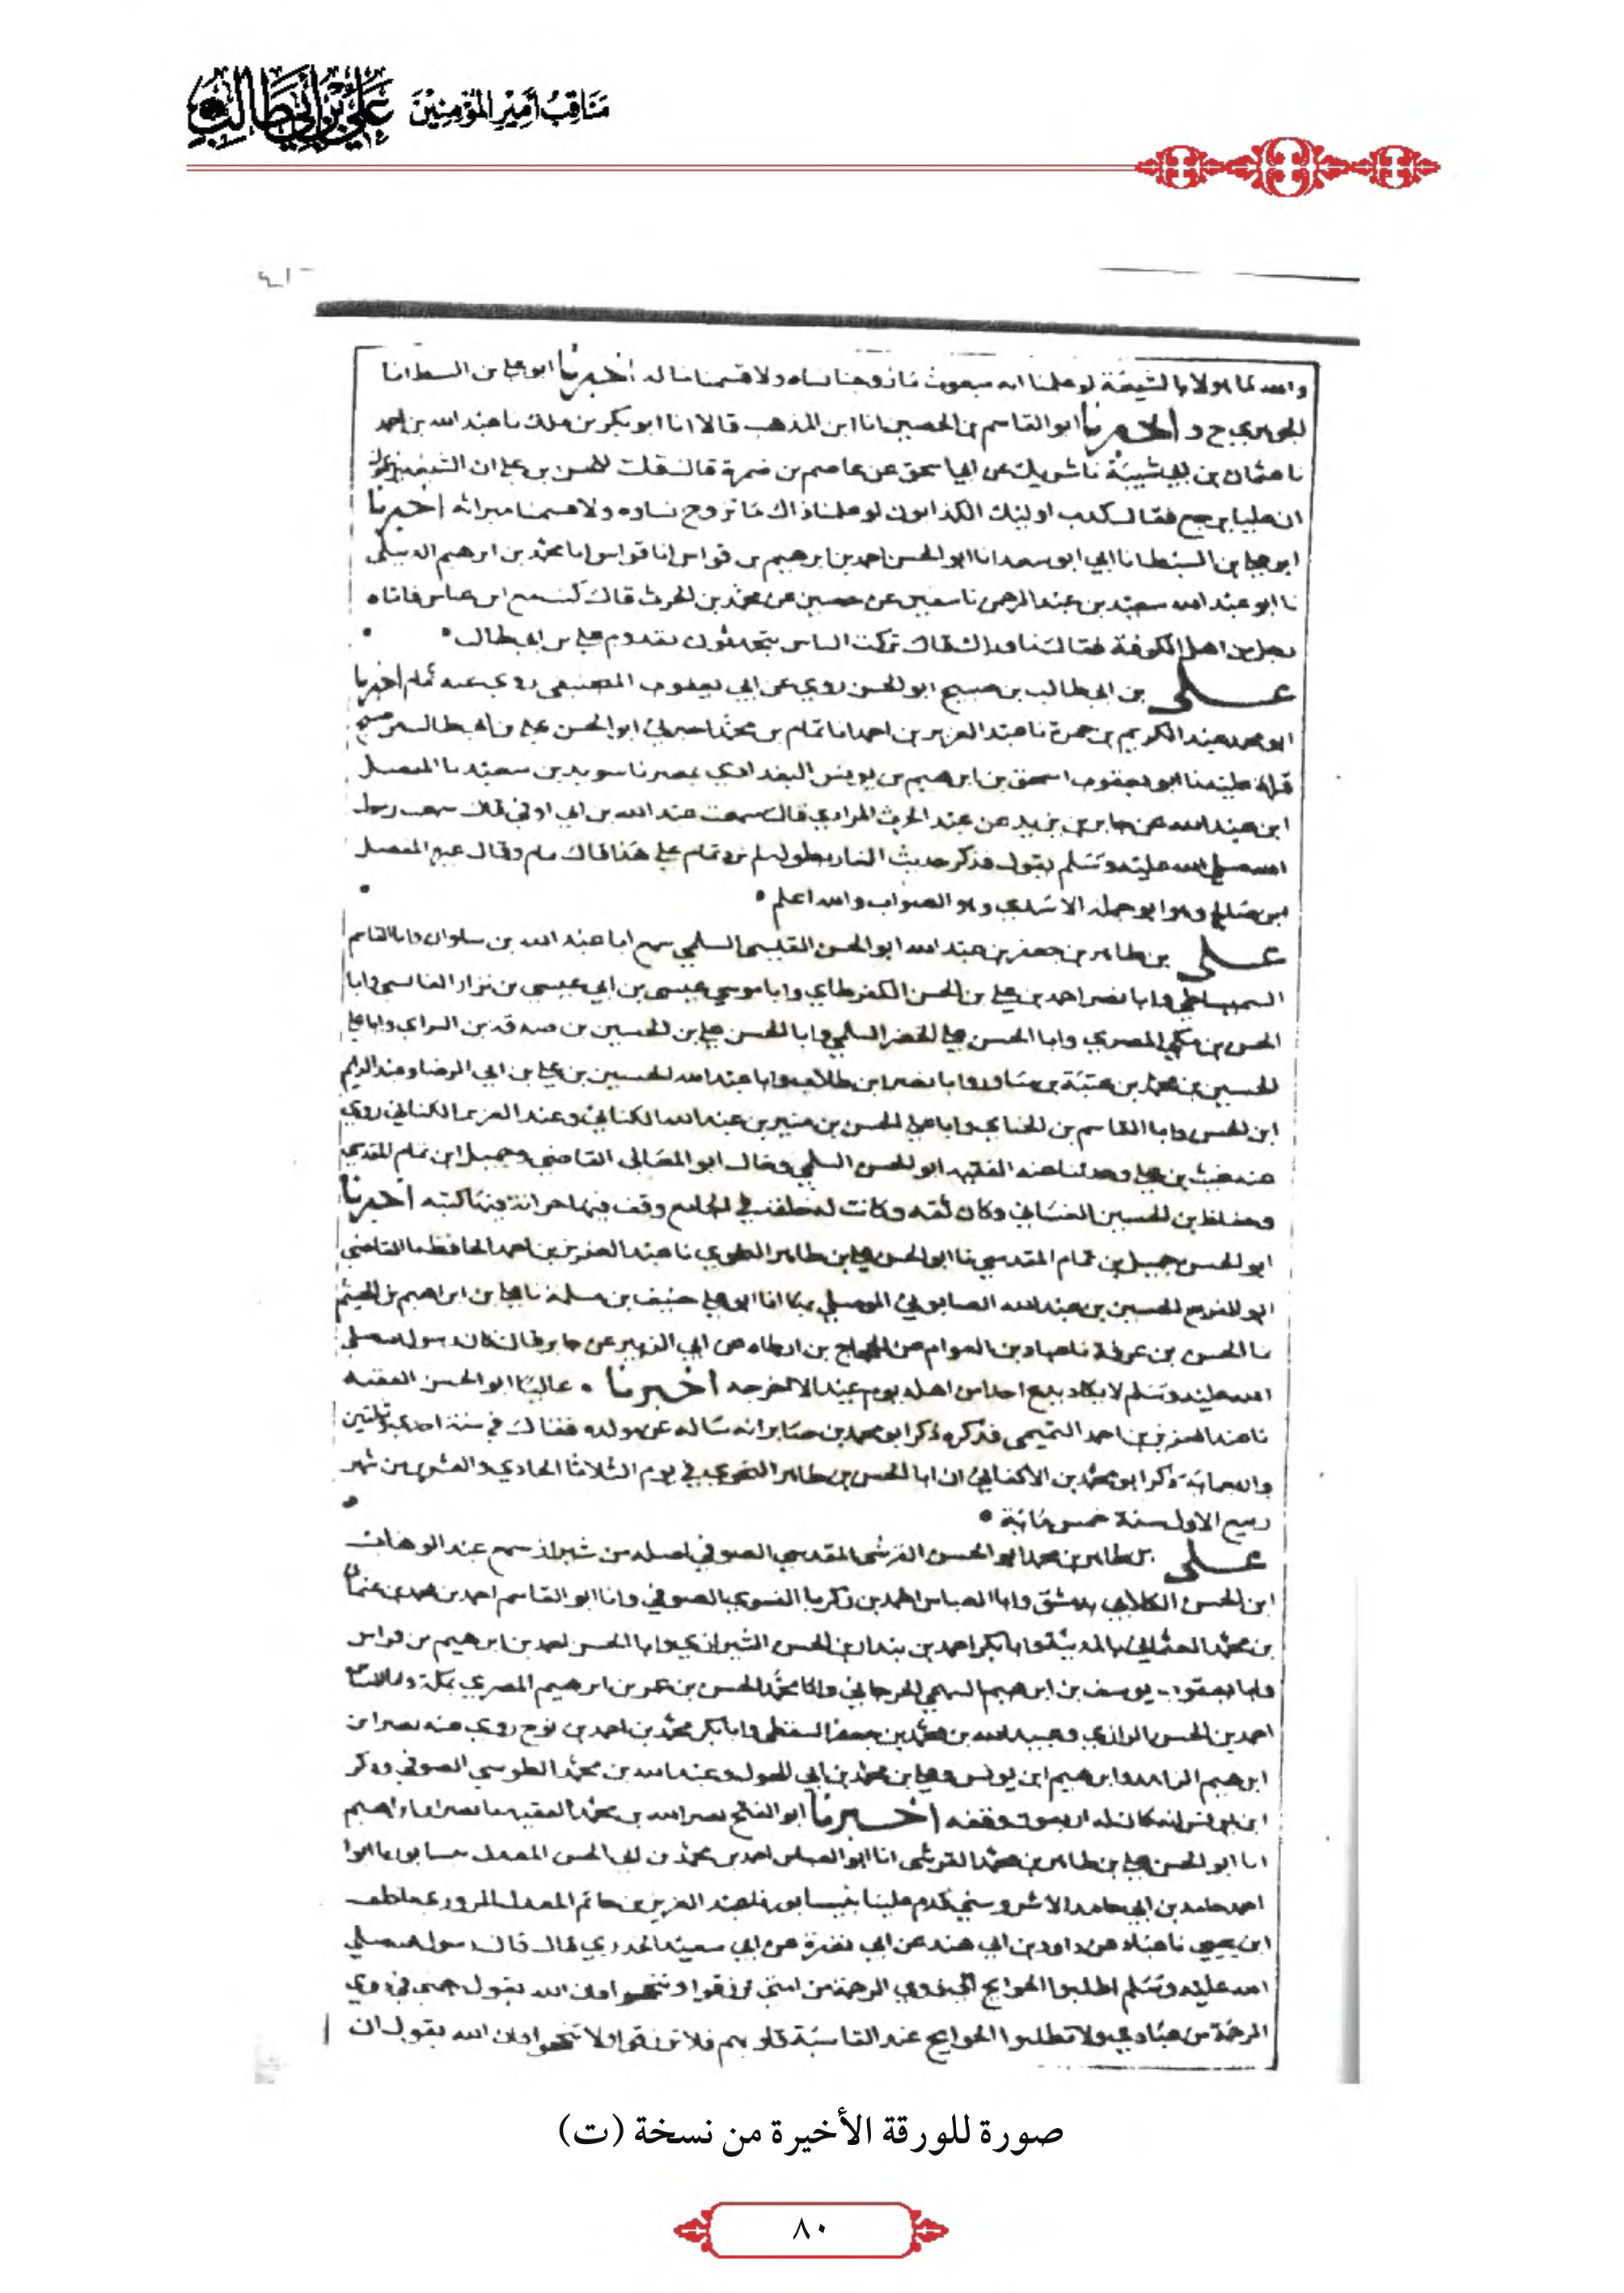 مَنَاقِبُ أَمِيْرِ المُؤْمِنِيْنَ عَلِيِّ بْنِ أَبِي طَالِب
والله ما هولاء بالشيعة لو علمنا انه مبعوث ما زوجنا نساه ولا قسمنا ماله اخبرنا ابو علي بن السبط انا
الجوهري ح واخبرنا ابو القاسم بن الحصين انا ابن المذهب قالا انا ابو بكر بن ملك نا عبد الله بن احمد
نا عثمان بن ابي شيبة نا شريك عن ابي اسحق عن عاصم بن ضمرة قال قلت للحسن بن علي ان الشيعة
ان عليا يرجع فقال كذب اوليك الكذابون لو علمنا ذاك ما تزوج نساوه ولا قسمنا ميراثه اخبرنا
ابو علي بن السبط انا ابي ابو سعد انا ابو الحسن احمد بن ابرهيم بن فراس انا محمد بن ابرهيم الديبلي
نا ابو عبد الله سعيد بن عبد الرحمن نا سفين عن حصين عن محمد بن الحرث قال كنت مع ابن عباس فاتاه
رجل من اهل الكوفة فقال تركت الناس يتحدثون بقدوم علي بن ابي طالب
علي بن ابي طالب بن صبيح ابو الحسن روى عن ابي يعقوب روى عنه تمام اخبرنا
ابو محمد عبد الكريم بن حمزة نا عبد العزيز بن احمد انا تمام بن محمد ابو الحسن علي بن ابي طالب بن صبيح
قراة علينا ابو يعقوب اسحق بن ابرهيم بن يونس البغدادي بمصر نا سويد بن سعيد نا المفضل
ابن عبد الله عن جابر بن يزيد عن عبد الله بن ابي اوفى قال سمعت رسول
الله صلى الله عليه وسلم يقول فذكر حديث الغار بطوله لم يزد تمام على هذا قال تمام وقال غيره المفضل
ابن صالح وهو ابو جميلة الاسدي وهو الصواب والله اعلم
علي بن طاهر بن جعفر بن عبد الله ابو الحسن القيسي السلمي سمع ابا عبد الله بن سلوان وابا القاسم
السميساطي وابا نصر احمد بن علي بن الحسن الكفرطابي وابا موسى عيسى بن ابي عيسى بن نزار القابسي وابا
الحسن بن مكي المصري وابا الحسن علي الخضر السلمي وابا الحسن علي بن الحسين بن صدقة بن السرابي وابا علي
الحسين بن محمد بن عتبة بن وابا نصر بن طلاب وابا عبد الله الحسين بن علي بن ابي الرضا وعبد الدايم
ابن الحسن وابا القاسم بن الحنائي وابا علي الحسن بن منير بن عبد الله الكتاني وعبد العزيز الكتاني روى
عنه غيث بن علي وحدثنا عنه الفقيه ابو الحسن السلمي وخالي ابو المعالي القاضي وجميل بن تمام المقدسي
وحفاظ بن الحسين الغساني وكان ثقة وكانت له حلقة في الجامع وقف فيها خزانة فيها كتبه اخبرنا
ابو الحسن جميل بن تمام المقدسي نا ابو الحسن علي بن طاهر النحوي نا عبد العزيز بن احمد الحافظ نا القاضي
ابو الفرج الحسين بن عبد الله الصابوني الموصلي بها انا ابو علي حنيف بن مسلمة نا علي بن ابراهيم بن الهيثم
نا الحسن بن عرفة نا عباد بن العوام عن الحجاج بن ارطاه عن ابي الزبير عن جابر قال كان رسول الله صلى
الله عليه وسلم لا يكاد يدع احدا من اهله يوم عيد الا اخرجه اخبرنا عاليا ابو الحسن الفقيه
نا عبد العزيز بن احمد التميمي فذكره ذكر ابو محمد بن صابر انه ساله عن مولده فقال في سنة احدى وثلثين
واربعماية وذكر ابو محمد بن الاكفاني ان ابا الحسن بن طاهر النحوي في يوم الثلاثا الحادي والعشرين من شهر
ربيع الاول سنة خمس ماية
علي بن طاهر بن محمد ابو الحسن القرشي المقدسي الصوفي اصله من شيراز سمع عبد الوهاب
ابن الحسن الكلابي بدمشق وابا العباس احمد بن زكريا النسوي الصوفي وابا القاسم احمد بن محمد بن عثمان
بن محمد العثماني بالمدينة وابا بكر احمد بن بندار بن الحسن الشيرازي وابا الحسن احمد بن ابرهيم بن فراس
وابا يعقوب يوسف بن ابرهيم السهمي الجرجاني وابا محمد الحسن بن عمر بن ابرهيم المصري بمكة
احمد بن الحسن الرازي وعبيد الله بن محمد بن جعفر السقطي وابا بكر محمد بن احمد بن نوح روى عنه نصر بن
ابرهيم الزاهد وابرهيم ابن يونس وعلي بن محمد بن ابي الهول وعبد الله بن محمد الطوسي الصوفي وذكر
ابن يونس انه كان له اربعون وقفه اخبرنا ابو الفتح نصر الله بن محمد الفقيه نا نصر بن ابراهيم
انا ابو الحسن علي بن طاهر بن محمد القرشي انا ابو العباس احمد بن محمد بن ابي الحسن المعدل نا ابو
احمد حامد بن ابي حامد الاشروسني قدم علينا نيسابور نا عبد العزيز بن حاتم المعدل المروزي نا خلف
ابن يحيى نا عباد عن داود بن ابي هند عن ابي نضرة عن ابي سعيد الخدري قال قال رسول الله صلى
الله عليه وسلم اطلبوا الحوايج الى ذوي الرحمة من امتي ترزقوا وتنجحوا فان الله يقول رحمتي في ذوي
الرحمة من عبادي ولا تطلبوا الحوايج عند القاسية قلوبهم فلا ترزقوا ولا تنجحوا فان الله يقول ان
صورة للورقة الأخيرة من نسخة (ت)
٨٠